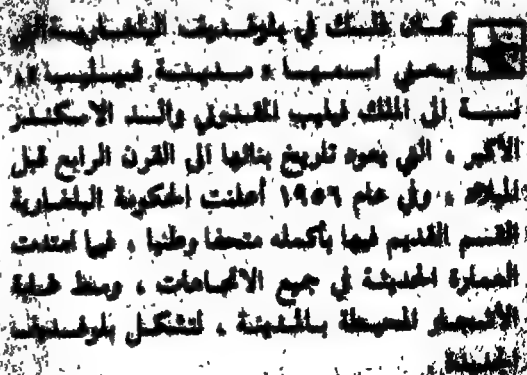 كان ذلك في بلوفديف البلغارية التي
يعني اسمها « مدينة فيليب »
نسبة الى الملك فيليب المقدوني والد الاسكندر
الأكبر ، التي يعود تاريخ بنائها الى القرن الرابع قبل
الميلاد ، وفي عام ١٩٥٦ أعلنت الحكومة البلغارية
القسم القديم فيها بأكمله متحفا وطنيا ، فيما امتدت
العمارة الحديثة في جميع الاتجاهات ، وسط غابة
الأشجار المحيطة بالمدينة ، لتشكل بلوفديف
الحديثة